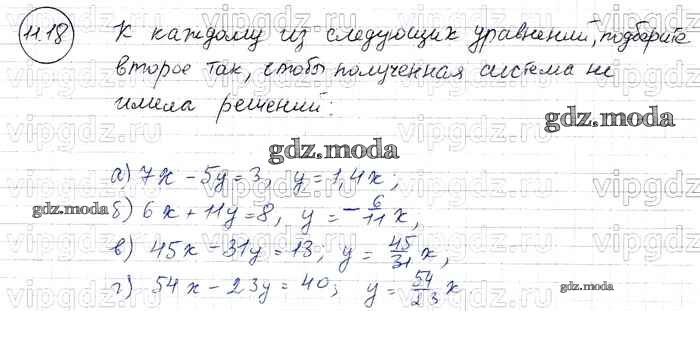 11.18 К каждому из следующих уравнений, подберите
второе так, чтобы полученная система не
имела решений:
gdz.moda
gdz.moda
а) 7x - 5y = 3, y = 1,4x;
gdz.moda б) 6x + 11y = 8, y = -6/11 x,
в) 45x - 31y = 13; y = 45/31 x,
г) 54x - 23y = 40; y = 54/23 x
gdz.moda
vipgdz.ru